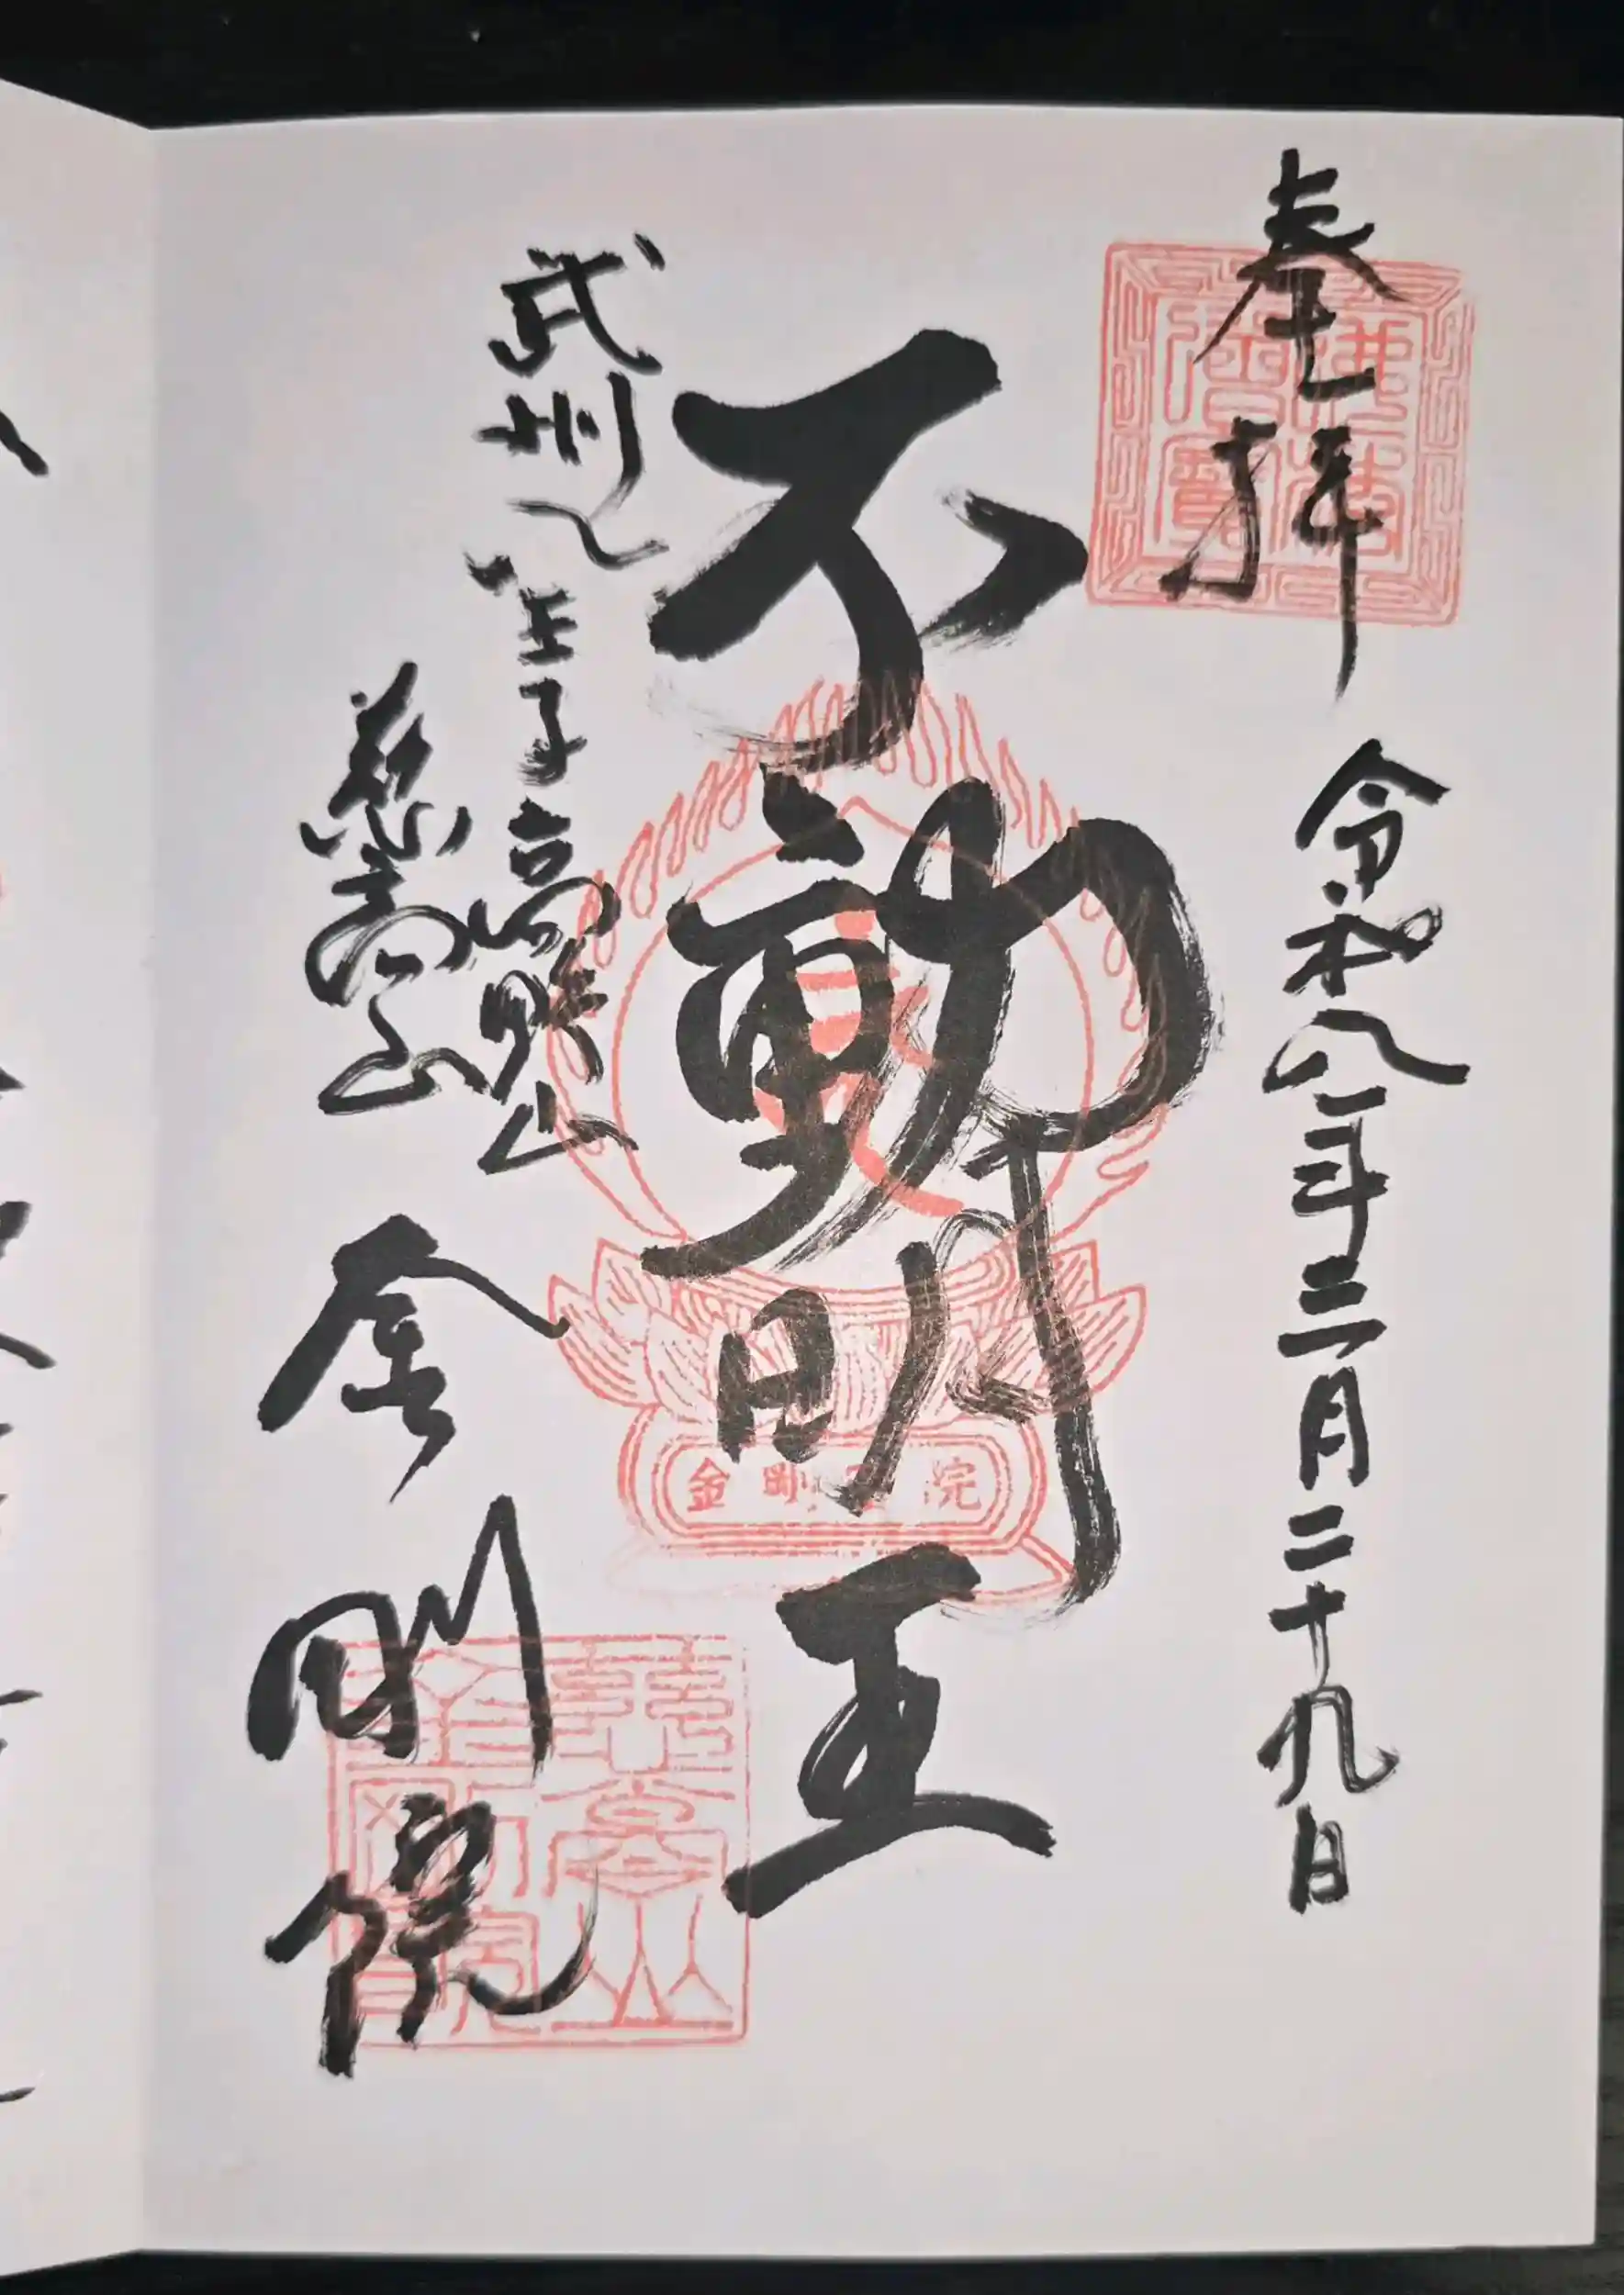 奉拝
令和八年三月二十九日
佛法僧寶
不動明王
武州八王子高野山
慈高山
金剛院
金剛 院